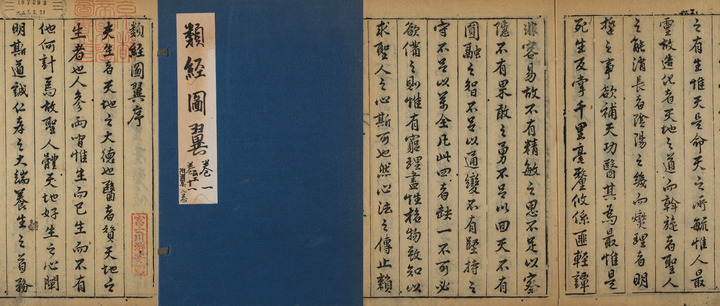 類經圖翼
卷一
類經圖翼序
夫生者天地之大德也醫者贊天地之
生者也人參兩間惟生而已生而不有
他何計焉故聖人體天地好生之心闡
明斯道誠仁孝之大端養生之首務
之有生惟天是命天之所毓惟人最
靈故造化者天地之道而斡旋者聖人
之能消長者陰陽之幾而燮理者明
哲之事欲補天功醫其為最惟是
死生反掌千里毫釐攸係匪輕譚
非容易故不有精敏之思不足以察
隱不有果敢之勇不足以回天不有
圓融之智不足以通變不有堅持之
守不足以萬全凡此四者缺一不可必
欲備之則惟有窮理盡性格物致知以
求聖人之心斯可也然心法之傳止賴